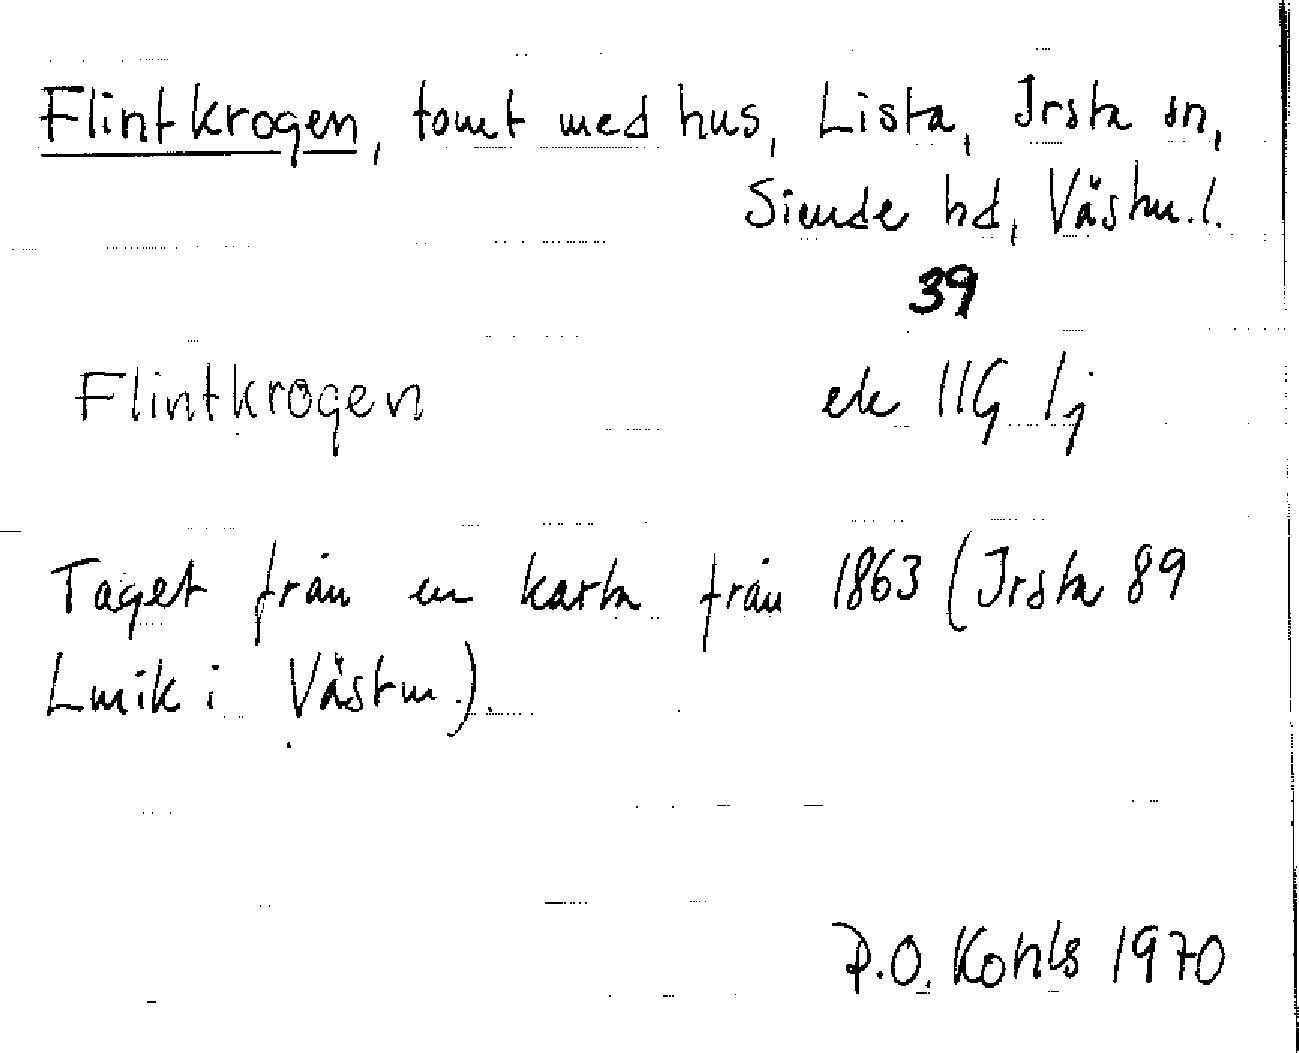 Flintkrogen, tomt med hus, Lista, Irsta sn,
Siende hd, Västm.l.
39
Flintkrogen ek 11G 1j
Taget från en karta från 1863 (Irsta 89
Lmik i Västm.).
P.O. Kohls 1970